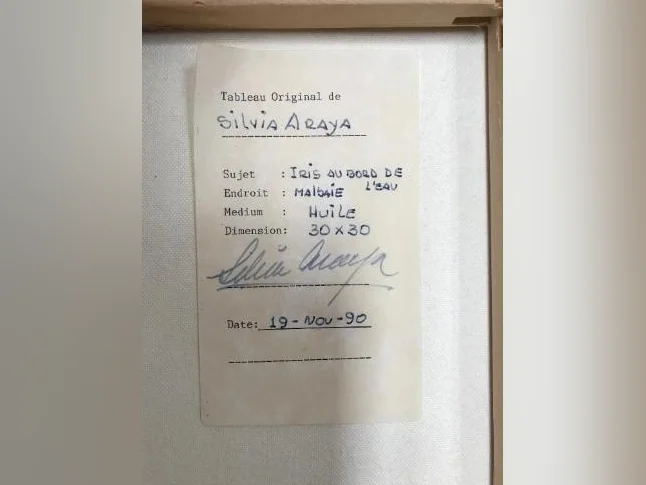 Tableau Original de
Silvia Araya
Sujet : IRIS AU BORD DE
L'EAU
Endroit : MALBAIE
Medium : HUILE
Dimension: 30x30
Silvia Araya
Date: 19-NOV-90